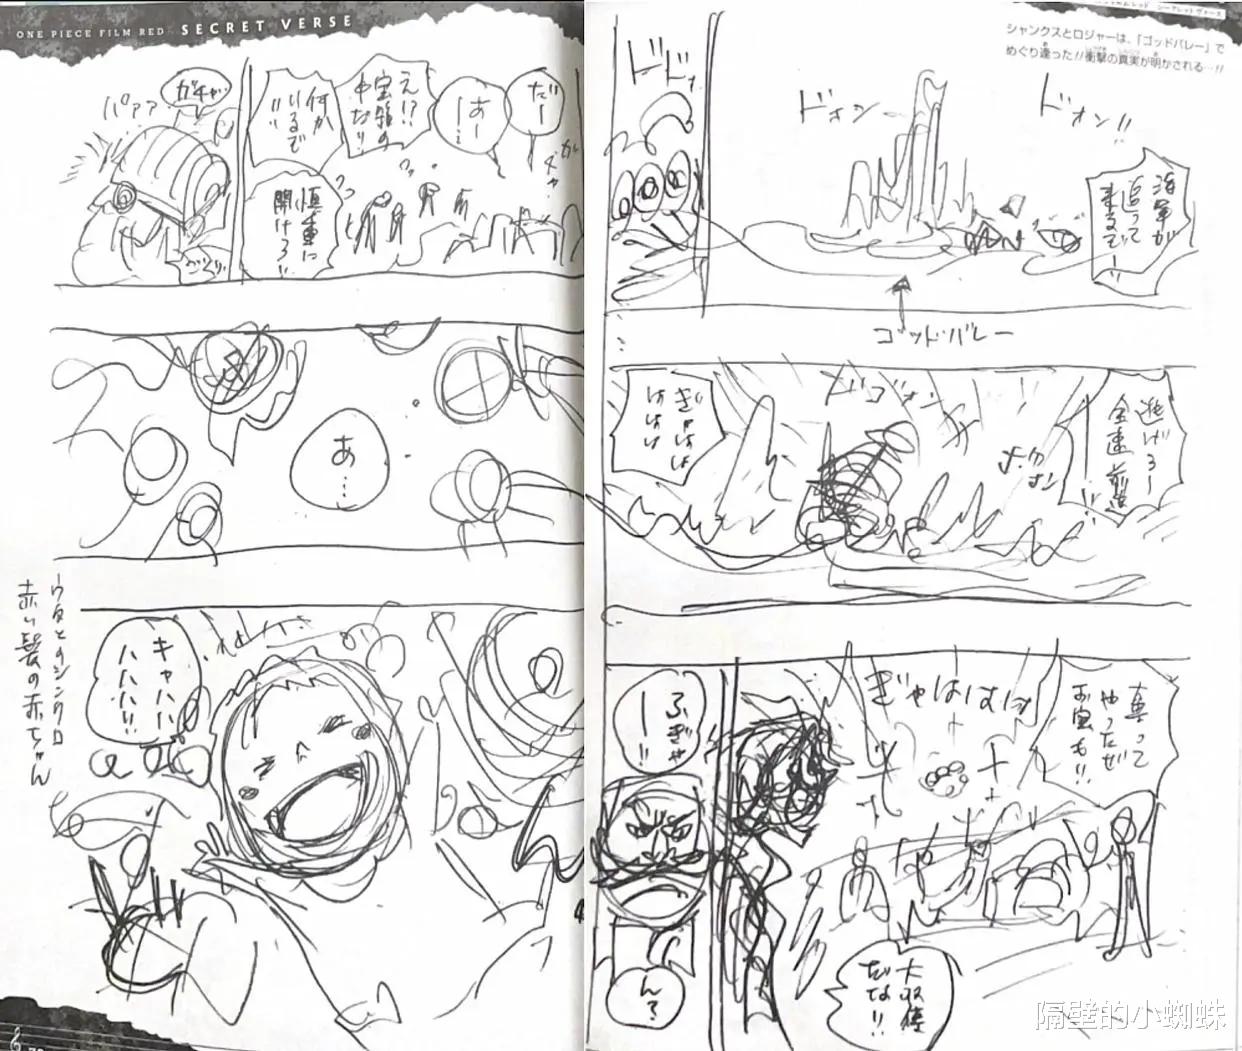 シャンクスとロジャーは、「ゴッドバレー」で
めぐり逢った!!衝撃の真実が明かされる…!!
ドォン!!
海軍が
追って
来るぞ
ドォン
ゴッドバレー
逃げろー
全速前進
ドゴォン
ぎゃはは
はははは
真って
やったぜ
お宝も!!
ぎゃはははは
大収穫
だな!!
ふぎゃ
ー!!
ん?
ONE PIECE FILM RED SECRET VERSE
だー
あー
ー!
え!?
宝箱の
中だ!!
何か
いるぞ
!!
慎重に
開けろ!!
ガチャ
パァァ
ごろり
あ…
キャハハ
ハハハ!!
ウタとのシンクロ
赤い髪の赤ちゃん
隔壁的小蜘蛛